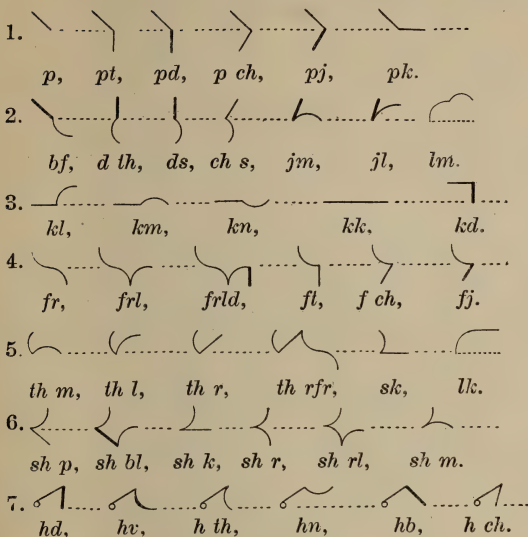 1.
p, pt, pd, p ch, pj, pk.
2.
bf, d th, ds, ch s, jm, jl, lm.
3.
kl, km, kn, kk, kd.
4.
fr, frl, frld, ft, f ch, fj.
5.
th m, th l, th r, th rfr, sk, lk.
6.
sh p, sh bl, sh k, sh r, sh rl, sh m.
7.
hd, hv, h th, hn, hb, h ch.